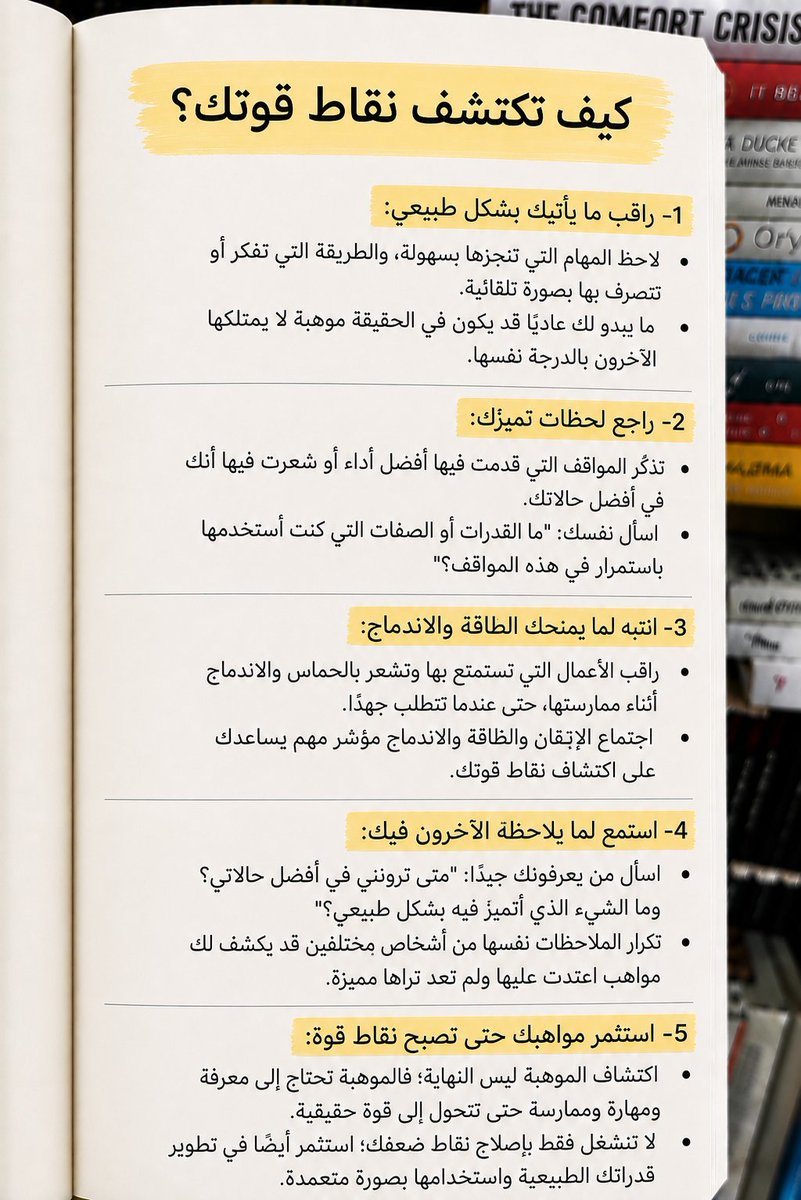 THE COMFORT CRISIS
كيف تكتشف نقاط قوتك؟
1- راقب ما يأتيك بشكل طبيعي:
• لاحظ المهام التي تنجزها بسهولة، والطريقة التي تفكر أو
تتصرف بها بصورة تلقائية.
• ما يبدو لك عاديًا قد يكون في الحقيقة موهبة لا يمتلكها
الآخرون بالدرجة نفسها.
2- راجع لحظات تميزك:
• تذكُر المواقف التي قدمت فيها أفضل أداء أو شعرت فيها أنك
في أفضل حالاتك.
• اسأل نفسك: "ما القدرات أو الصفات التي كنت أستخدمها
باستمرار في هذه المواقف؟"
3- انتبه لما يمنحك الطاقة والاندماج:
• راقب الأعمال التي تستمتع بها وتشعر بالحماس والاندماج
أثناء ممارستها، حتى عندما تتطلب جهدًا.
• اجتماع الإتقان والطاقة والاندماج مؤشر مهم يساعدك
على اكتشاف نقاط قوتك.
4- استمع لما يلاحظة الآخرون فيك:
• اسأل من يعرفونك جيدًا: "متى ترونني في أفضل حالاتي؟
وما الشيء الذي أتميز فيه بشكل طبيعي؟"
• تكرار الملاحظات نفسها من أشخاص مختلفين قد يكشف لك
مواهب اعتدت عليها ولم تعد تراها مميزة.
5- استثمر مواهبك حتى تصبح نقاط قوة:
• اكتشاف الموهبة ليس النهاية؛ فالموهبة تحتاج إلى معرفة
ومهارة وممارسة حتى تتحول إلى قوة حقيقية.
• لا تنشغل فقط بإصلاح نقاط ضعفك؛ استثمر أيضًا في تطوير
قدراتك الطبيعية واستخدامها بصورة متعمدة.